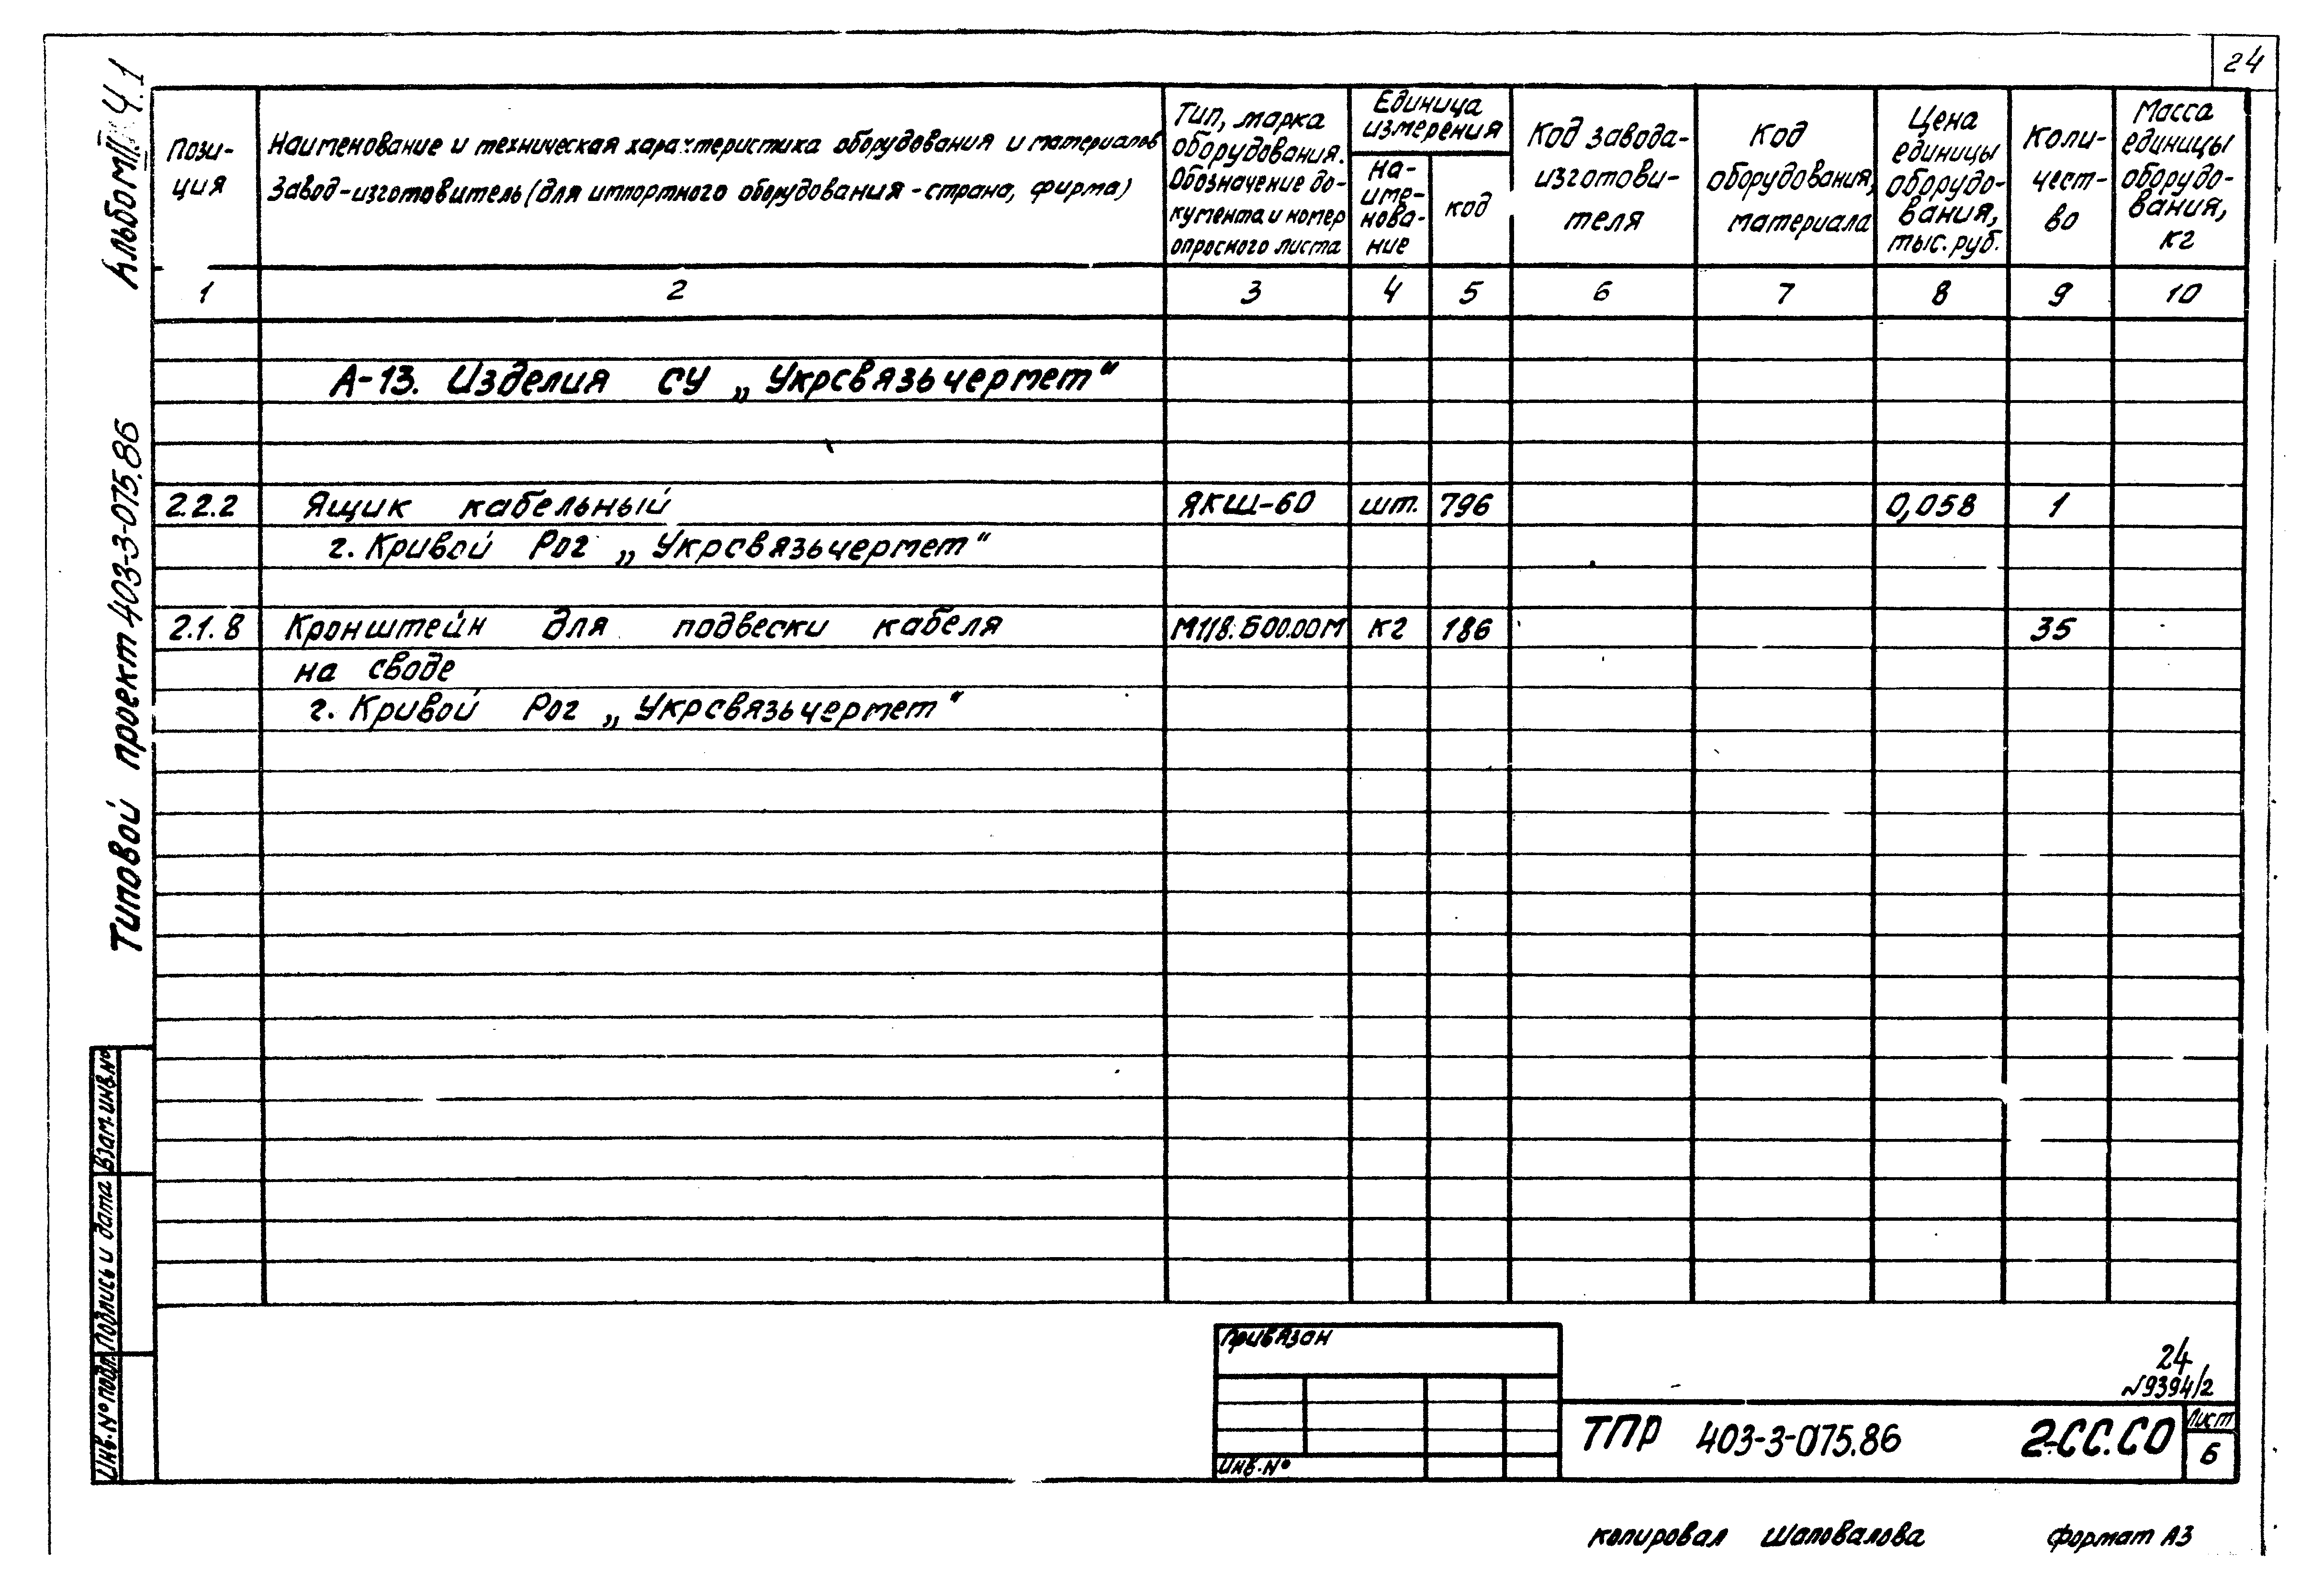 24
Альбом III Ч.1
Типовой проект 403-3-075.86
Пози-
ция
Наименование и техническая характеристика оборудования и материалов
Завод-изготовитель (для импортного оборудования - страна, фирма)
Тип, марка
оборудования.
Обозначение до-
кумента и номер
опросного листа
Единица
измерения
На-
име-
нова-
ние
код
Код завода-
изготови-
теля
Код
оборудования,
материала
Цена
единицы
оборудо-
вания,
тыс. руб.
Коли-
чест-
во
Масса
единицы
оборудо-
вания,
кг
1 2 3 4 5 6 7 8 9 10
А-13. Изделия СУ „Укрсвязьчермет“
2.2.2 Ящик кабельный ЯКШ-60 шт. 796 0,058 1
г. Кривой Рог „Укрсвязьчермет“
2.1.8 Кронштейн для подвески кабеля М118.Б00.00М кг 186 35
на своде
г. Кривой Рог „Укрсвязьчермет“
Взам.инв.№
Подпись и дата
Инв.№ подл.
Привязан
Инв.№
24
№9394/2
ТПР 403-3-075.86 2-СС.СО
Лист
6
копировал Шаповалова формат А3